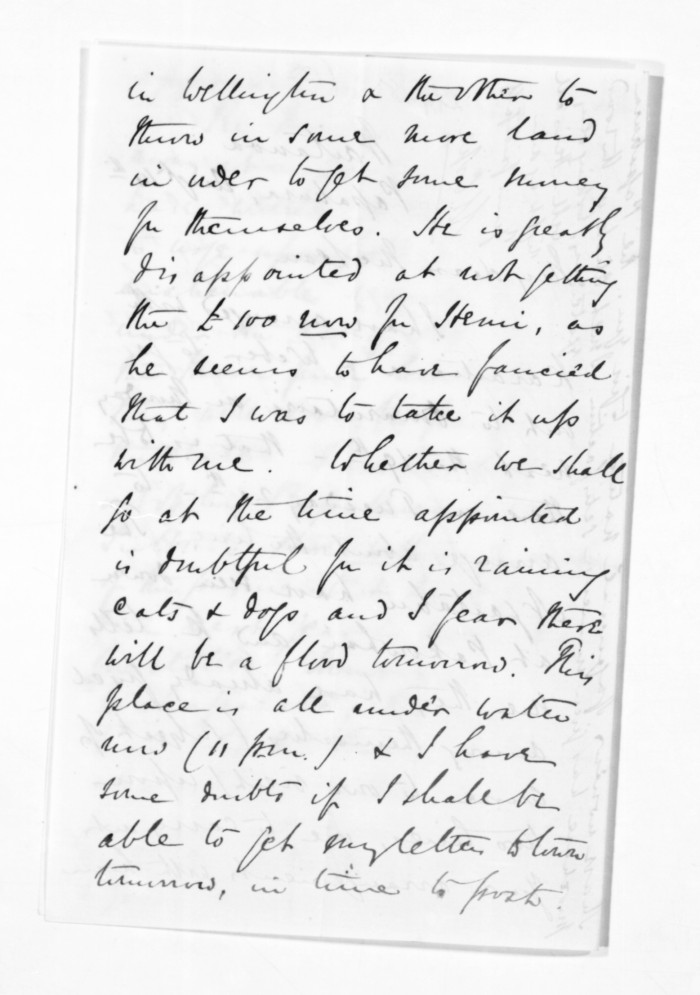 in Wellington & the other to
throw in some more land
in order to get some money
for themselves. He is greatly
disappointed at not getting
the £100 now for Hemi, as
he seems to have fancied
that I was to take it up
with me. Whether we shall
go at the time appointed
is doubtful for it is raining
cats & dogs and I fear there
will be a flood tomorrow. This
place is all under water
now (11 p.m.) & I have
some doubts if I shall be
able to get my letter to town
tomorrow, in time to post.